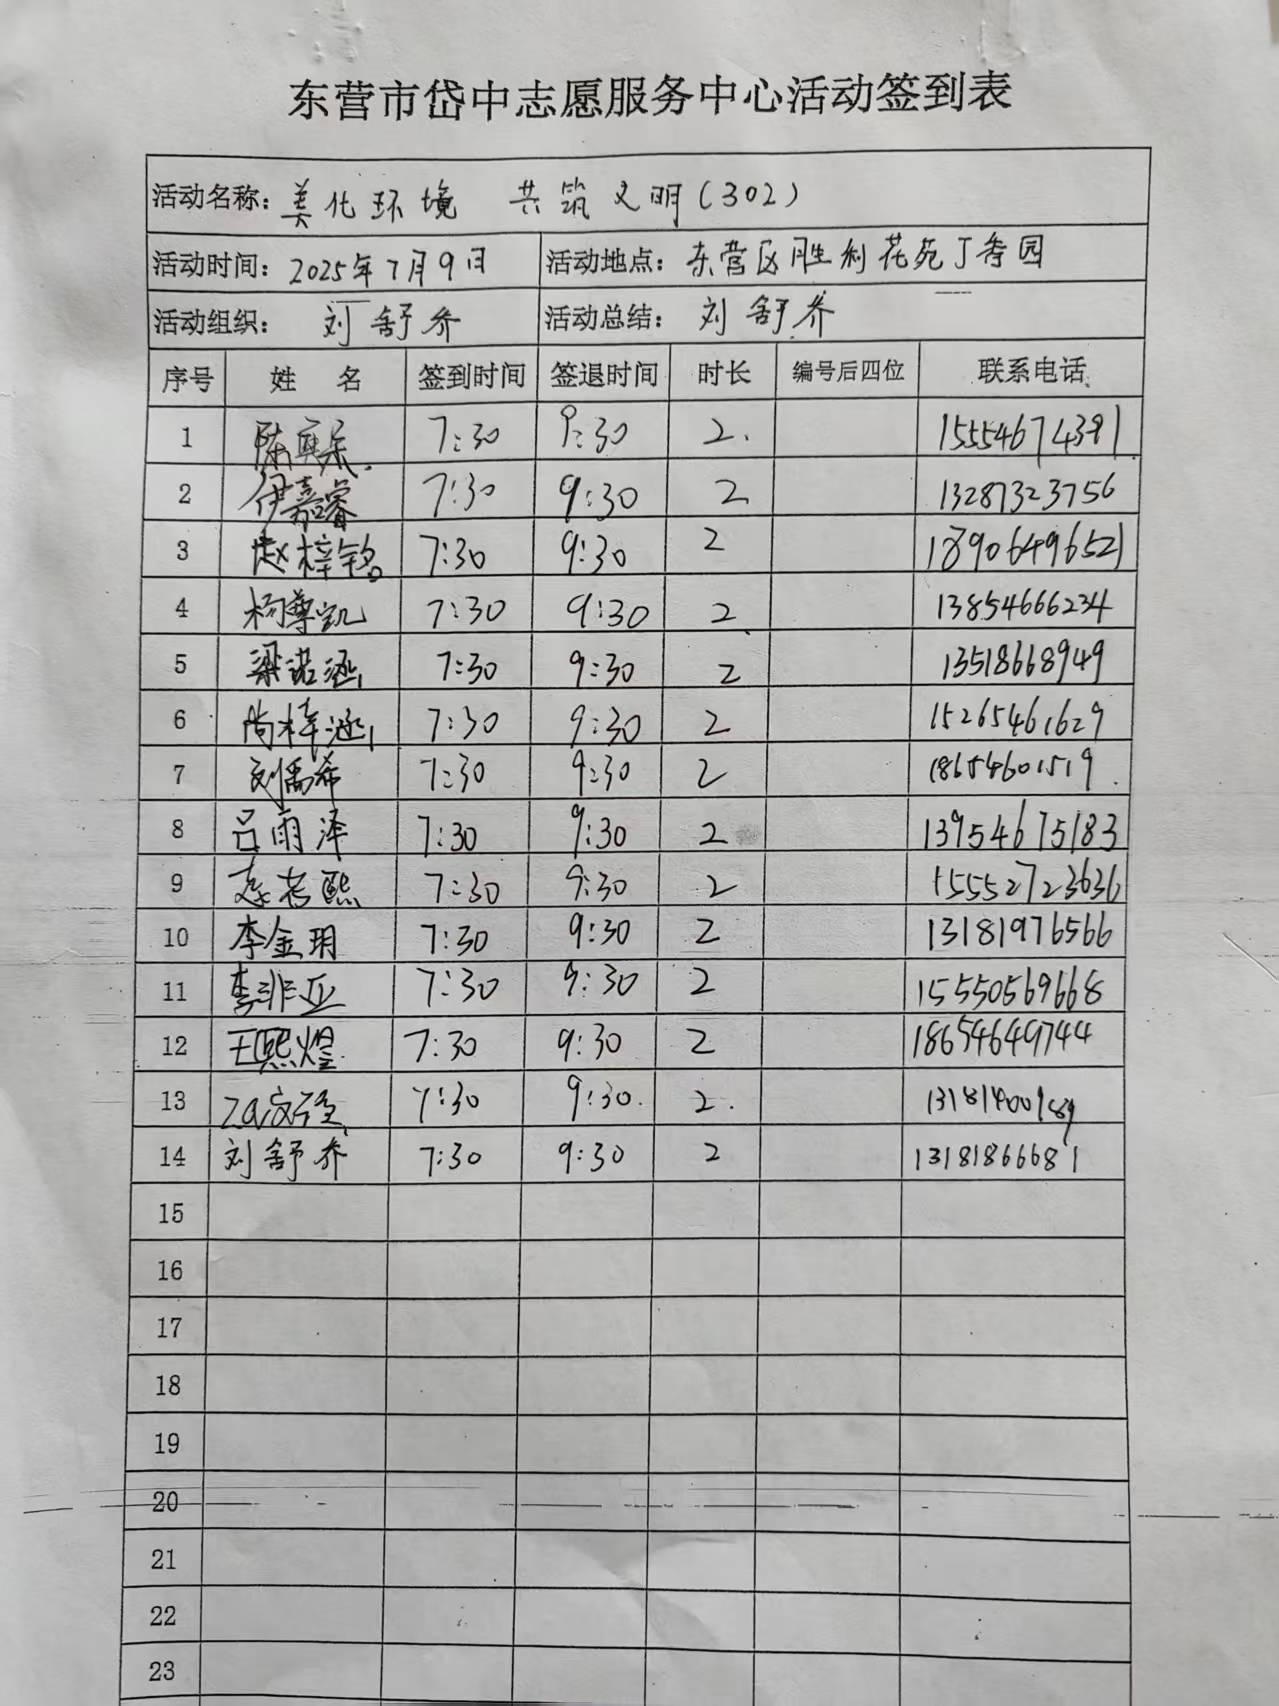 东营市岱中志愿服务中心活动签到表
活动名称：美化环境 共筑文明（302）
活动时间：2025年7月9日 活动地点：东营区胜利花苑丁香园
活动组织：刘舒乔 活动总结：刘舒乔
序号 姓 名 签到时间 签退时间 时长 编号后四位 联系电话
1 7:30 9:30 2. 15554674391
2 伊嘉睿 7:30 9:30 2 13287323756
3 赵梓铭 7:30 9:30 2 18906496521
4 杨尊凯 7:30 9:30 2 13854666234
5 梁诺涵 7:30 9:30 2 13518668949
6 尚梓涵 7:30 9:30 2 15265461629
7 刘禹希 7:30 9:30 2 18654601519
8 吕雨泽 7:30 9:30 2 13954675183
9 7:30 9:30 2 15552723636
10 李金玥 7:30 9:30 2 13181976566
11 李非亚 7:30 9:30 2 15550569668
12 王熙煌 7:30 9:30 2 18654649744
13 7:30 9:30. 2.
14 刘舒乔 7:30 9:30 2 13181866681
15
16
17
18
19
20
21
22
23